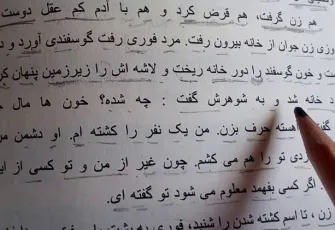 هم زن گرفت، هم قرض کرد و هم با آدم کم عقل دوست
وزی زن جوان از خانه بیرون رفت. مرد فوری رفت گوسفندی آورد و
و خون گوسفند را دور خانه ریخت و لاشه اش را زیرزمین پنهان کر
خانه شد و به شوهرش گفت : چه شده؟ خون ها مال
هسته حرف بزن. من یک نفر را کشته ام. او دشمن من
ردی تو را هم می کشم. چون غیر از من و تو کسی از این
اگر کسی بفهمد معلوم می شود تو گفته ای.
زن ، تا اسم کشته شدن را شنید، فوری به پشت